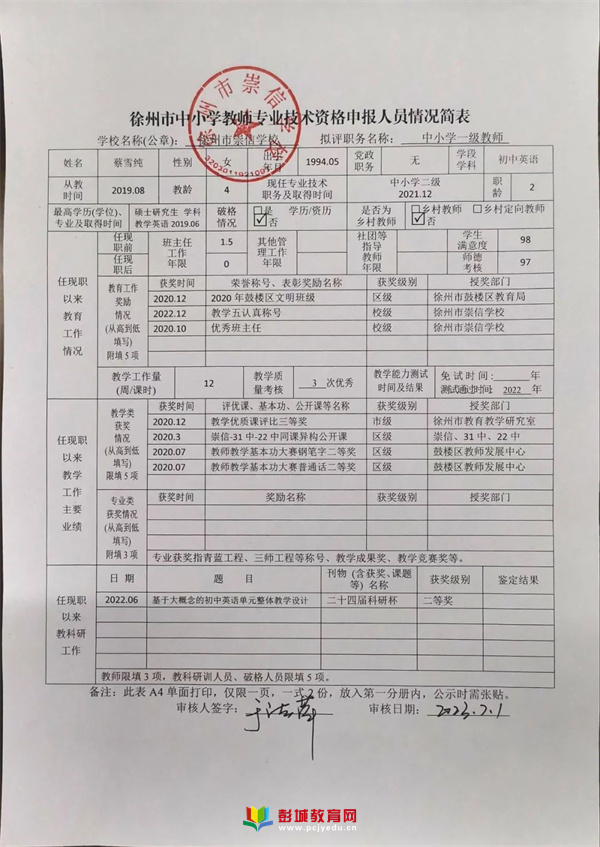 徐州市中小学教师专业技术资格申报人员情况简表
学校名称(公章): 徐州市崇信学校 拟评职务名称: 中小学一级教师
徐州市崇信学校
姓名 蔡雪纯 性别 女 出生年月 1994.05 党政职务 无 学段学科 初中英语
从教时间 2019.08 教龄 4 现任专业技术职务及取得时间 中小学二级 2021.12 职龄 2
最高学历(学位)、专业及取得时间 硕士研究生 学科教学英语 2019.06 破格情况 □是 ☑否 学历/资历 是否为乡村教师 □乡村教师 □乡村定向教师 ☑否
任现职以来教育工作情况
任现职前 班主任工作年限 1.5 其他管理工作年限 社团等指导教师年限 学生满意度 98
任现职后 0 师德考核 97
教育工作奖励情况(从高到低填写)附填5项
获奖时间 荣誉称号、表彰奖励名称 获奖级别 授奖部门
2020.12 2020年鼓楼区文明班级 区级 徐州市鼓楼区教育局
2022.12 教学五认真称号 校级 徐州市崇信学校
2020.10 优秀班主任 校级 徐州市崇信学校
教学工作量(周/课时) 12 教学质量考核 3 次优秀 教学能力测试时间及结果 免试时间: 年
测试通过时间: 2022 年
任现职以来教学工作主要业绩
教学类获奖情况(从高到低填写)限填5项
获奖时间 评优课、基本功、公开课等名称 获奖级别 授奖部门
2020.12 教学优质课评比三等奖 市级 徐州市教育教学研究室
2020.3 崇信-31中-22中同课异构公开课 区级 崇信、31中、22中
2020.07 教师教学基本功大赛钢笔字二等奖 区级 鼓楼区教师发展中心
2020.07 教师教学基本功大赛普通话二等奖 区级 鼓楼区教师发展中心
专业类获奖情况(从高到低填写)附填3项
获奖时间 奖励名称 获奖级别 授奖部门
专业获奖指青蓝工程、三师工程等称号、教学成果奖、教学竞赛奖等。
任现职以来教科研工作
日期 题目 刊物(含获奖、课题等) 获奖级别 鉴定结果
2022.06 基于大概念的初中英语单元整体教学设计 二十四届科研杯 二等奖
教师限填3项，教科研训人员、破格人员限填5项。
备注: 此表A4单面打印，仅限一页，一式2份，放入第一分册内，公示时需张贴。
审核人签字: 审核日期: 2023.7.1
彭城教育网
www.pcjyedu.cn